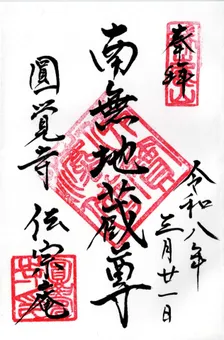 奉拝
令和八年三月廿一日
南無地蔵尊
圓覚寺 伝宗庵